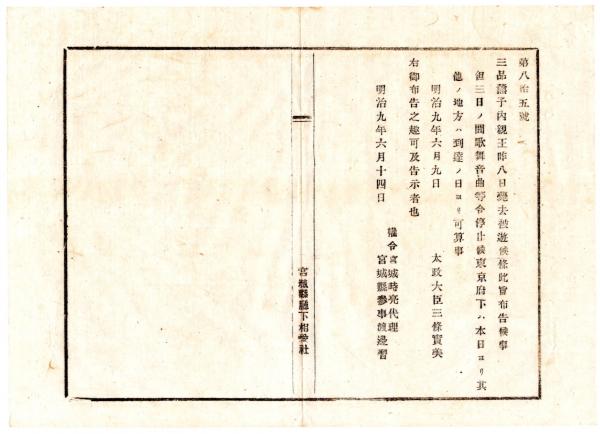 第八拾五號
三品薫子內親王昨八日薨去被遊候條此旨布告候事
但三日ノ間歌舞音曲等令停止候東京府下ハ本日ヨリ其
他ノ地方ハ到達ノ日ヨリ可算事
明治九年六月九日
太政大臣三條實美
右御布告之趣可及告示者也
明治九年六月十四日
權令宮城時亮代理
宮城縣參事渡邊習
宮城縣廳下相參社